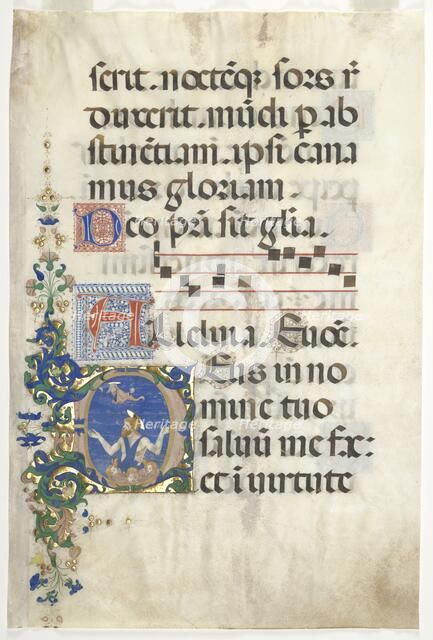 serit. noctēqꝫ sors r̄
duxerit. mūdi ꝑ ab
stinētiam. ipsi cana
mus gloriam.
Deo pr̄i sit gl̄ia.
Aleluia. Euoē.
Deus in no
mine tuo
saluū me fac:
et i uirtute